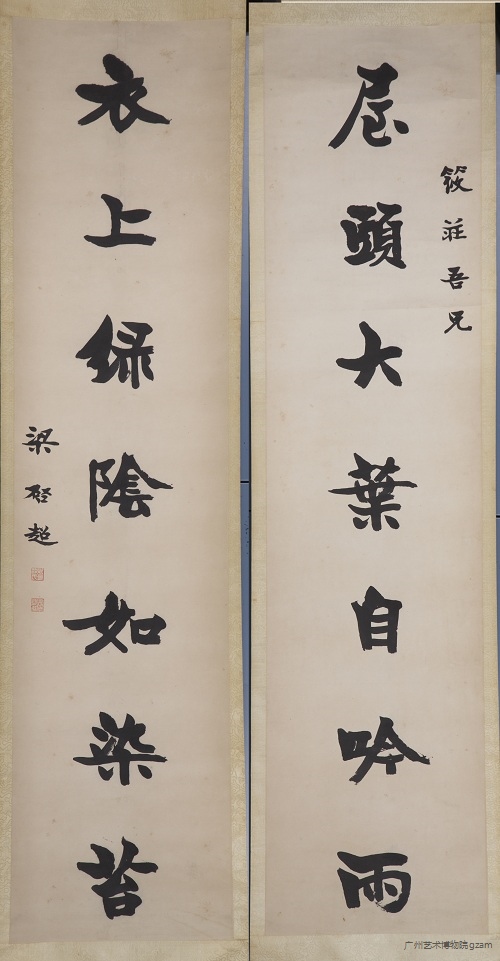 筱莊吾兄
屋頭大葉自吟雨
衣上綠陰如染苔
梁啓超
广州艺术博物院gzam